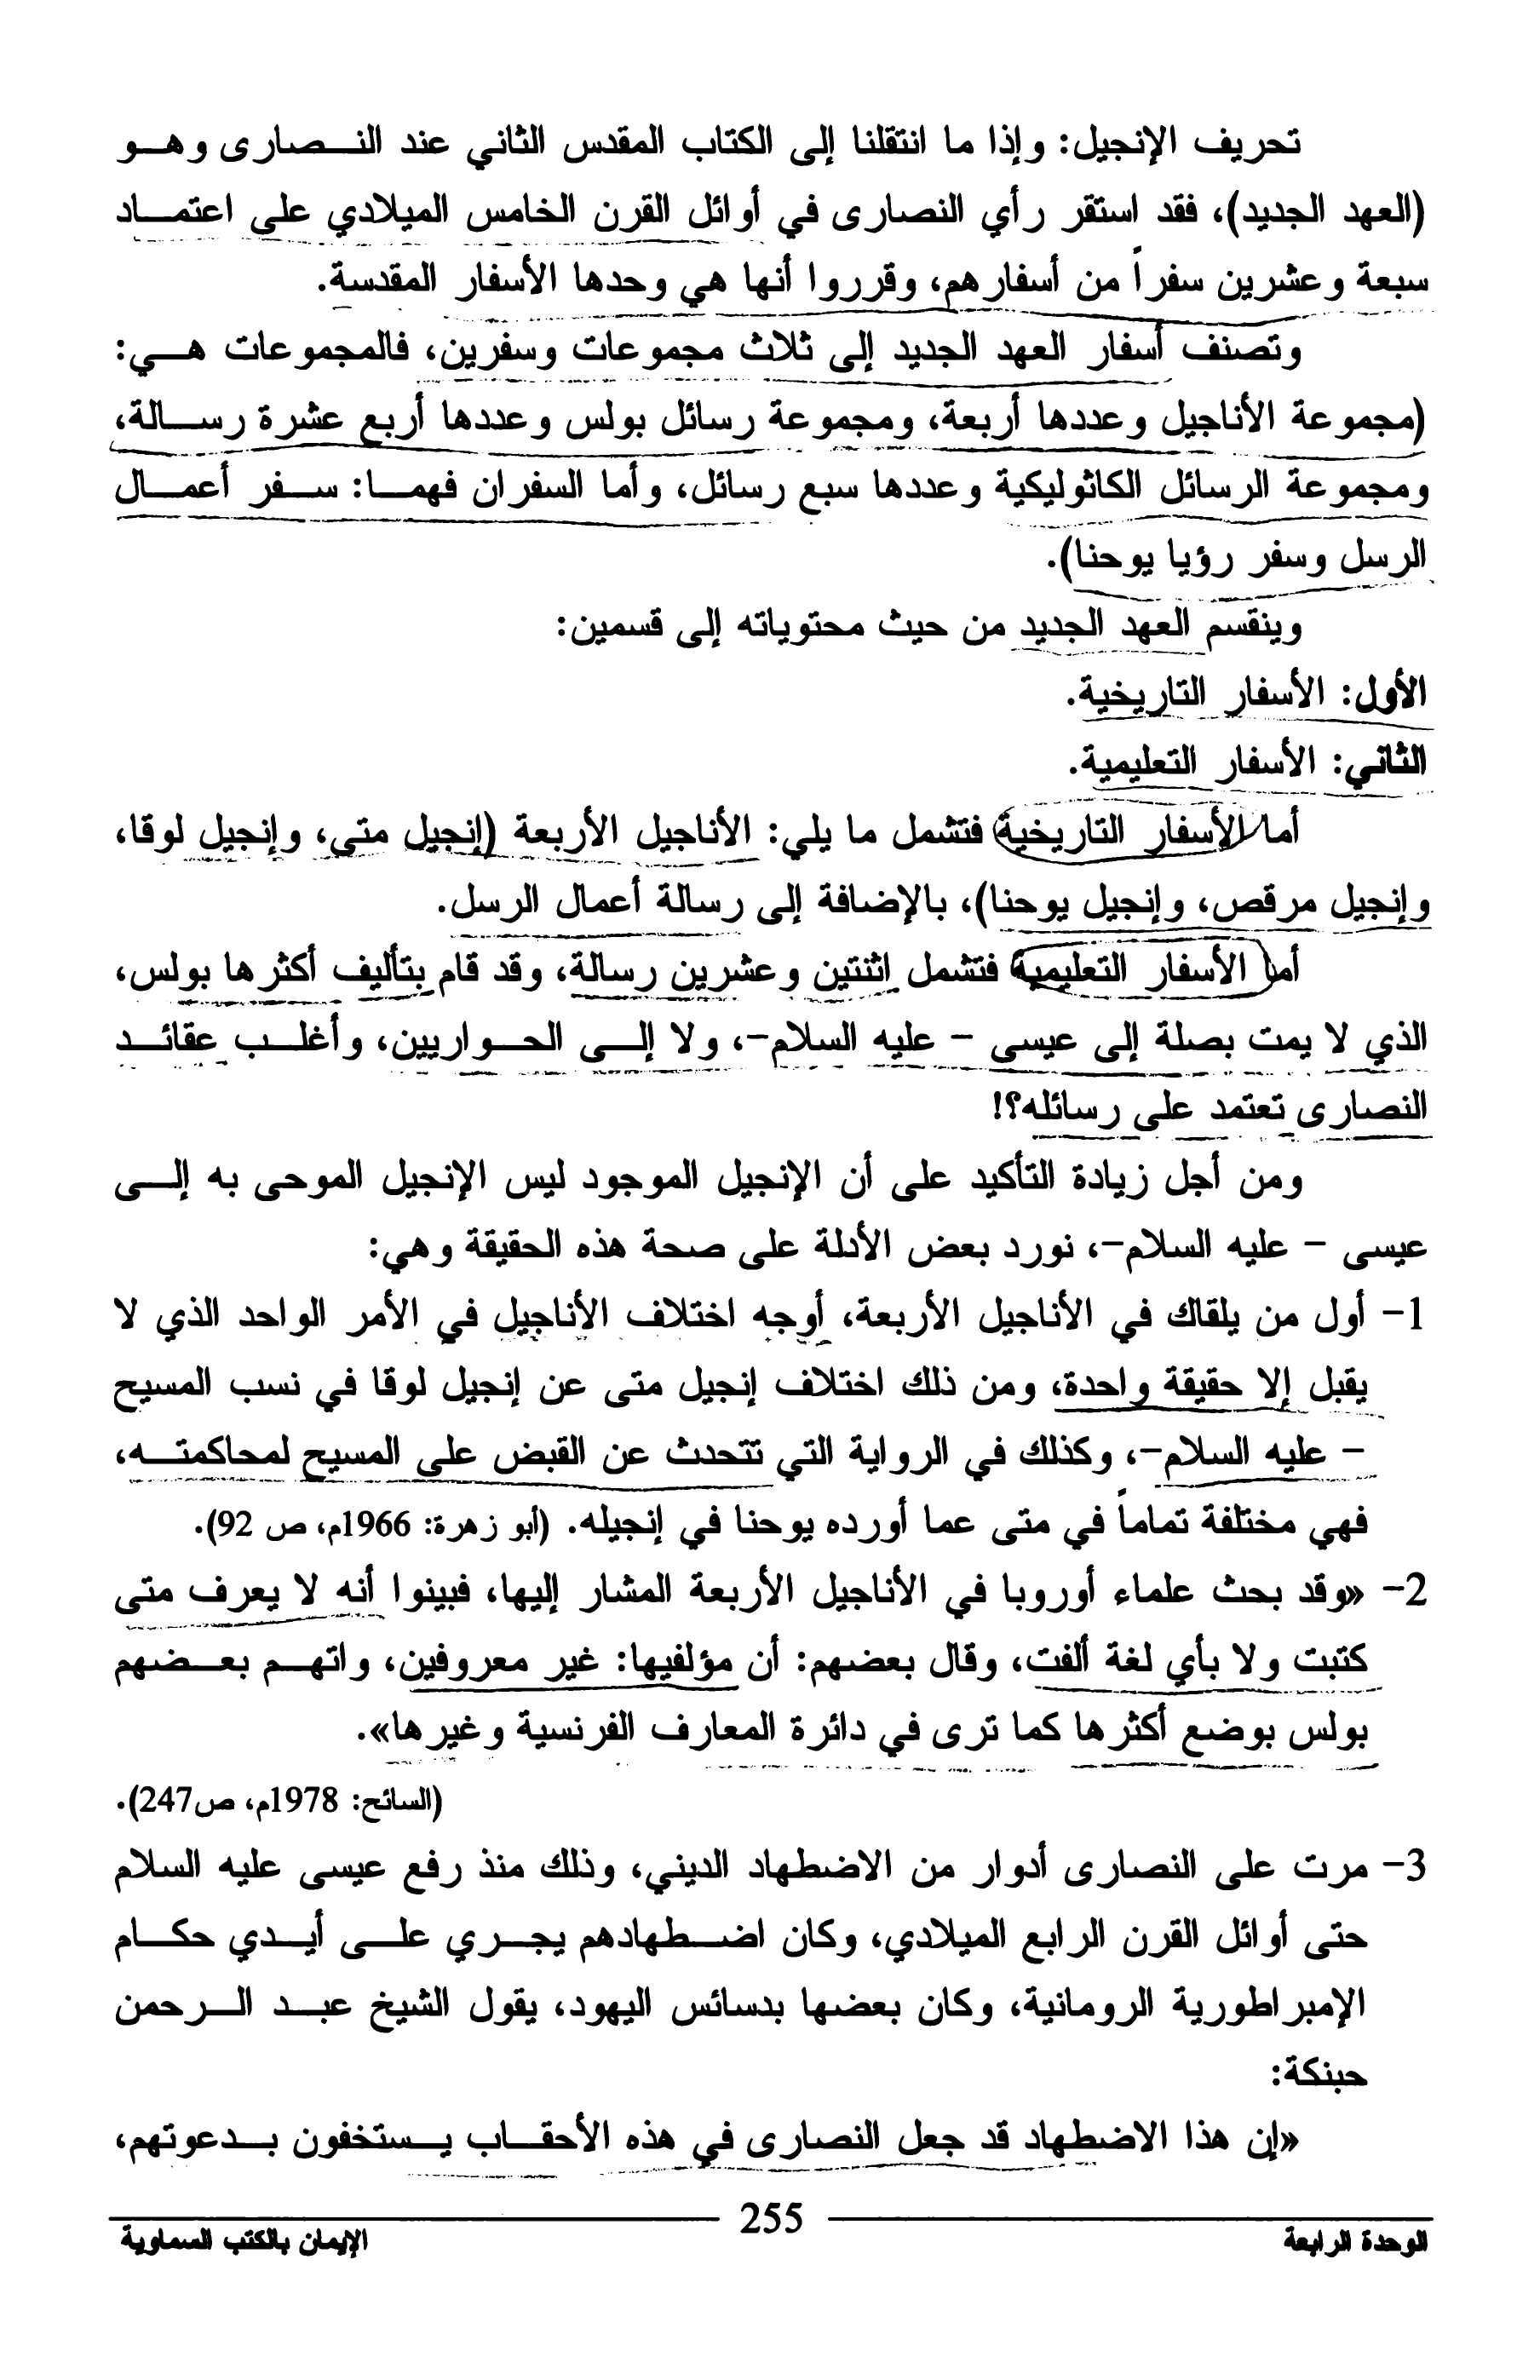 تحريف الإنجيل: وإذا ما انتقلنا إلى الكتاب المقدس الثاني عند النصارى وهو
(العهد الجديد)، فقد استقر رأي النصارى في أوائل القرن الخامس الميلادي على اعتماد
سبعة وعشرين سفراً من أسفارهم، وقرروا أنها هي وحدها الأسفار المقدسة.
وتصنف أسفار العهد الجديد إلى ثلاث مجموعات وسفرين، فالمجموعات هي:
(مجموعة الأناجيل وعددها أربعة، ومجموعة رسائل بولس وعددها أربع عشرة رسالة،
ومجموعة الرسائل الكاثوليكية وعددها سبع رسائل، وأما السفران فهما: سفر أعمال
الرسل وسفر رؤيا يوحنا).
وينقسم العهد الجديد من حيث محتوياته إلى قسمين:
الأول: الأسفار التاريخية.
الثاني: الأسفار التعليمية.
أما الأسفار التاريخية فتشمل ما يلي: الأناجيل الأربعة (إنجيل متى، وإنجيل لوقا،
وإنجيل مرقص، وإنجيل يوحنا)، بالإضافة إلى رسالة أعمال الرسل.
أما الأسفار التعليمية فتشمل اثنتين وعشرين رسالة، وقد قام بتأليف أكثرها بولس،
الذي لا يمت بصلة إلى عيسى - عليه السلام-، ولا إلى الحواريين، وأغلب عقائد
النصارى تعتمد على رسائله؟!
ومن أجل زيادة التأكيد على أن الإنجيل الموجود ليس الإنجيل الموحى به إلى
عيسى - عليه السلام-، نورد بعض الأدلة على صحة هذه الحقيقة وهي:
1- أول من يلقاك في الأناجيل الأربعة، أوجه اختلاف الأناجيل في الأمر الواحد الذي لا
يقبل إلا حقيقة واحدة، ومن ذلك اختلاف إنجيل متى عن إنجيل لوقا في نسب المسيح
- عليه السلام-، وكذلك في الرواية التي تتحدث عن القبض على المسيح لمحاكمته،
فهي مختلفة تماماً في متى عما أورده يوحنا في إنجيله. (أبو زهرة: 1966م، ص 92).
2- «وقد بحث علماء أوروبا في الأناجيل الأربعة المشار إليها، فبينوا أنه لا يعرف متى
كتبت ولا بأي لغة ألفت، وقال بعضهم: أن مؤلفيها: غير معروفين، واتهم بعضهم
بولس بوضع أكثرها كما ترى في دائرة المعارف الفرنسية وغيرها».
(السائح: 1978م، ص247).
3- مرت على النصارى أدوار من الاضطهاد الديني، وذلك منذ رفع عيسى عليه السلام
حتى أوائل القرن الرابع الميلادي، وكان اضطهادهم يجري على أيدي حكام
الإمبراطورية الرومانية، وكان بعضها بدسائس اليهود، يقول الشيخ عبد الرحمن
حبنكة:
«إن هذا الاضطهاد قد جعل النصارى في هذه الأحقاب يستخفون بدعوتهم،
255
الوحدة الرابعة
الإيمان بالكتب السماوية